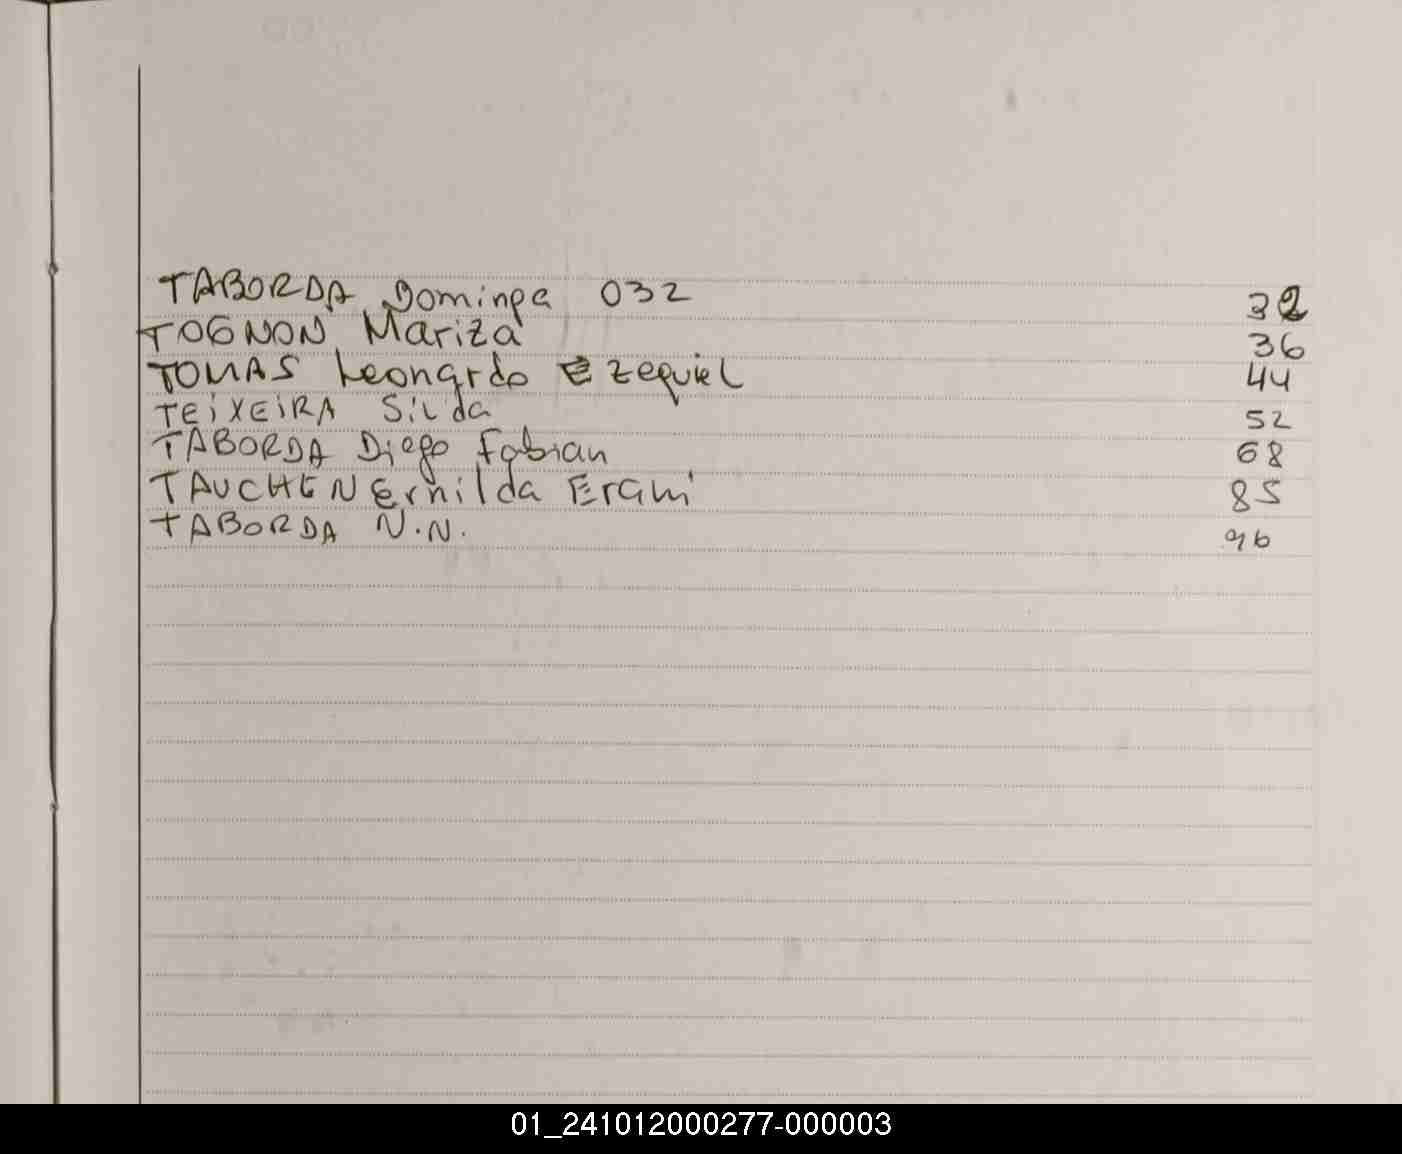 TABORDA Dominga 032 32
TOGNON Mariza 36
TOMAS Leonardo Ezequiel 44
TEIXEIRA Silda 52
TABORDA Diego Fabian 68
TAUCHEN Ernilda Erani 85
TABORDA N.N. 96
01_241012000277-000003